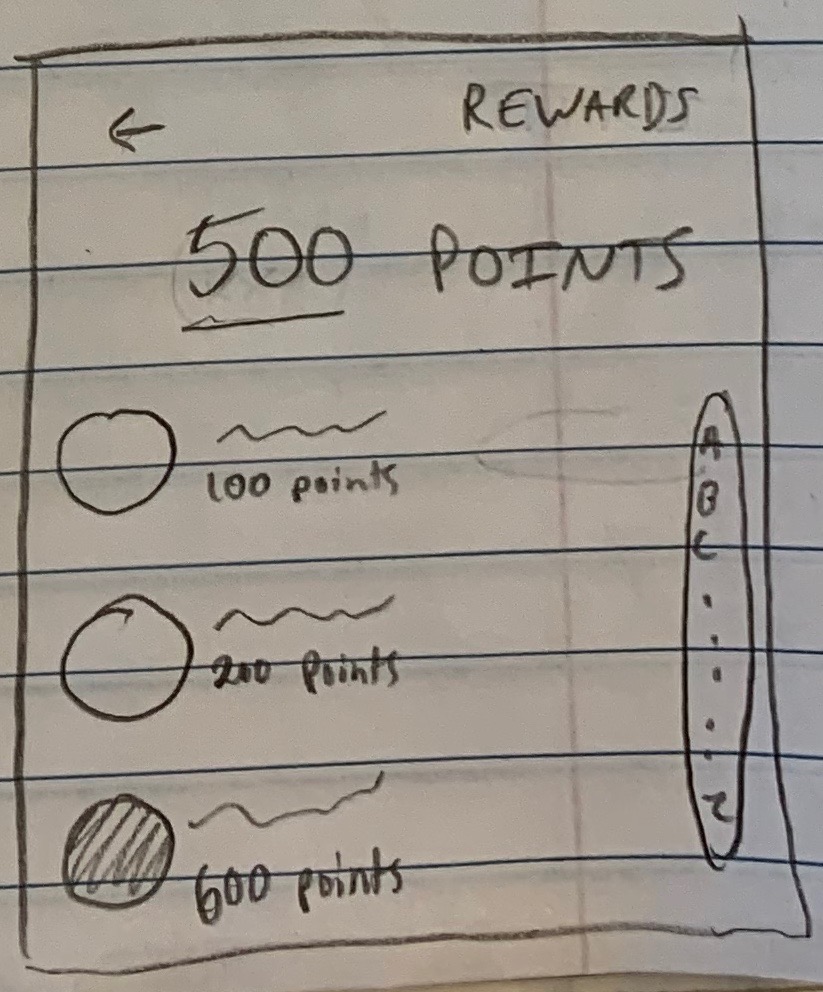 ← REWARDS
500 POINTS
100 points
200 points
600 points
A
B
C
.
.
.
.
.
Z